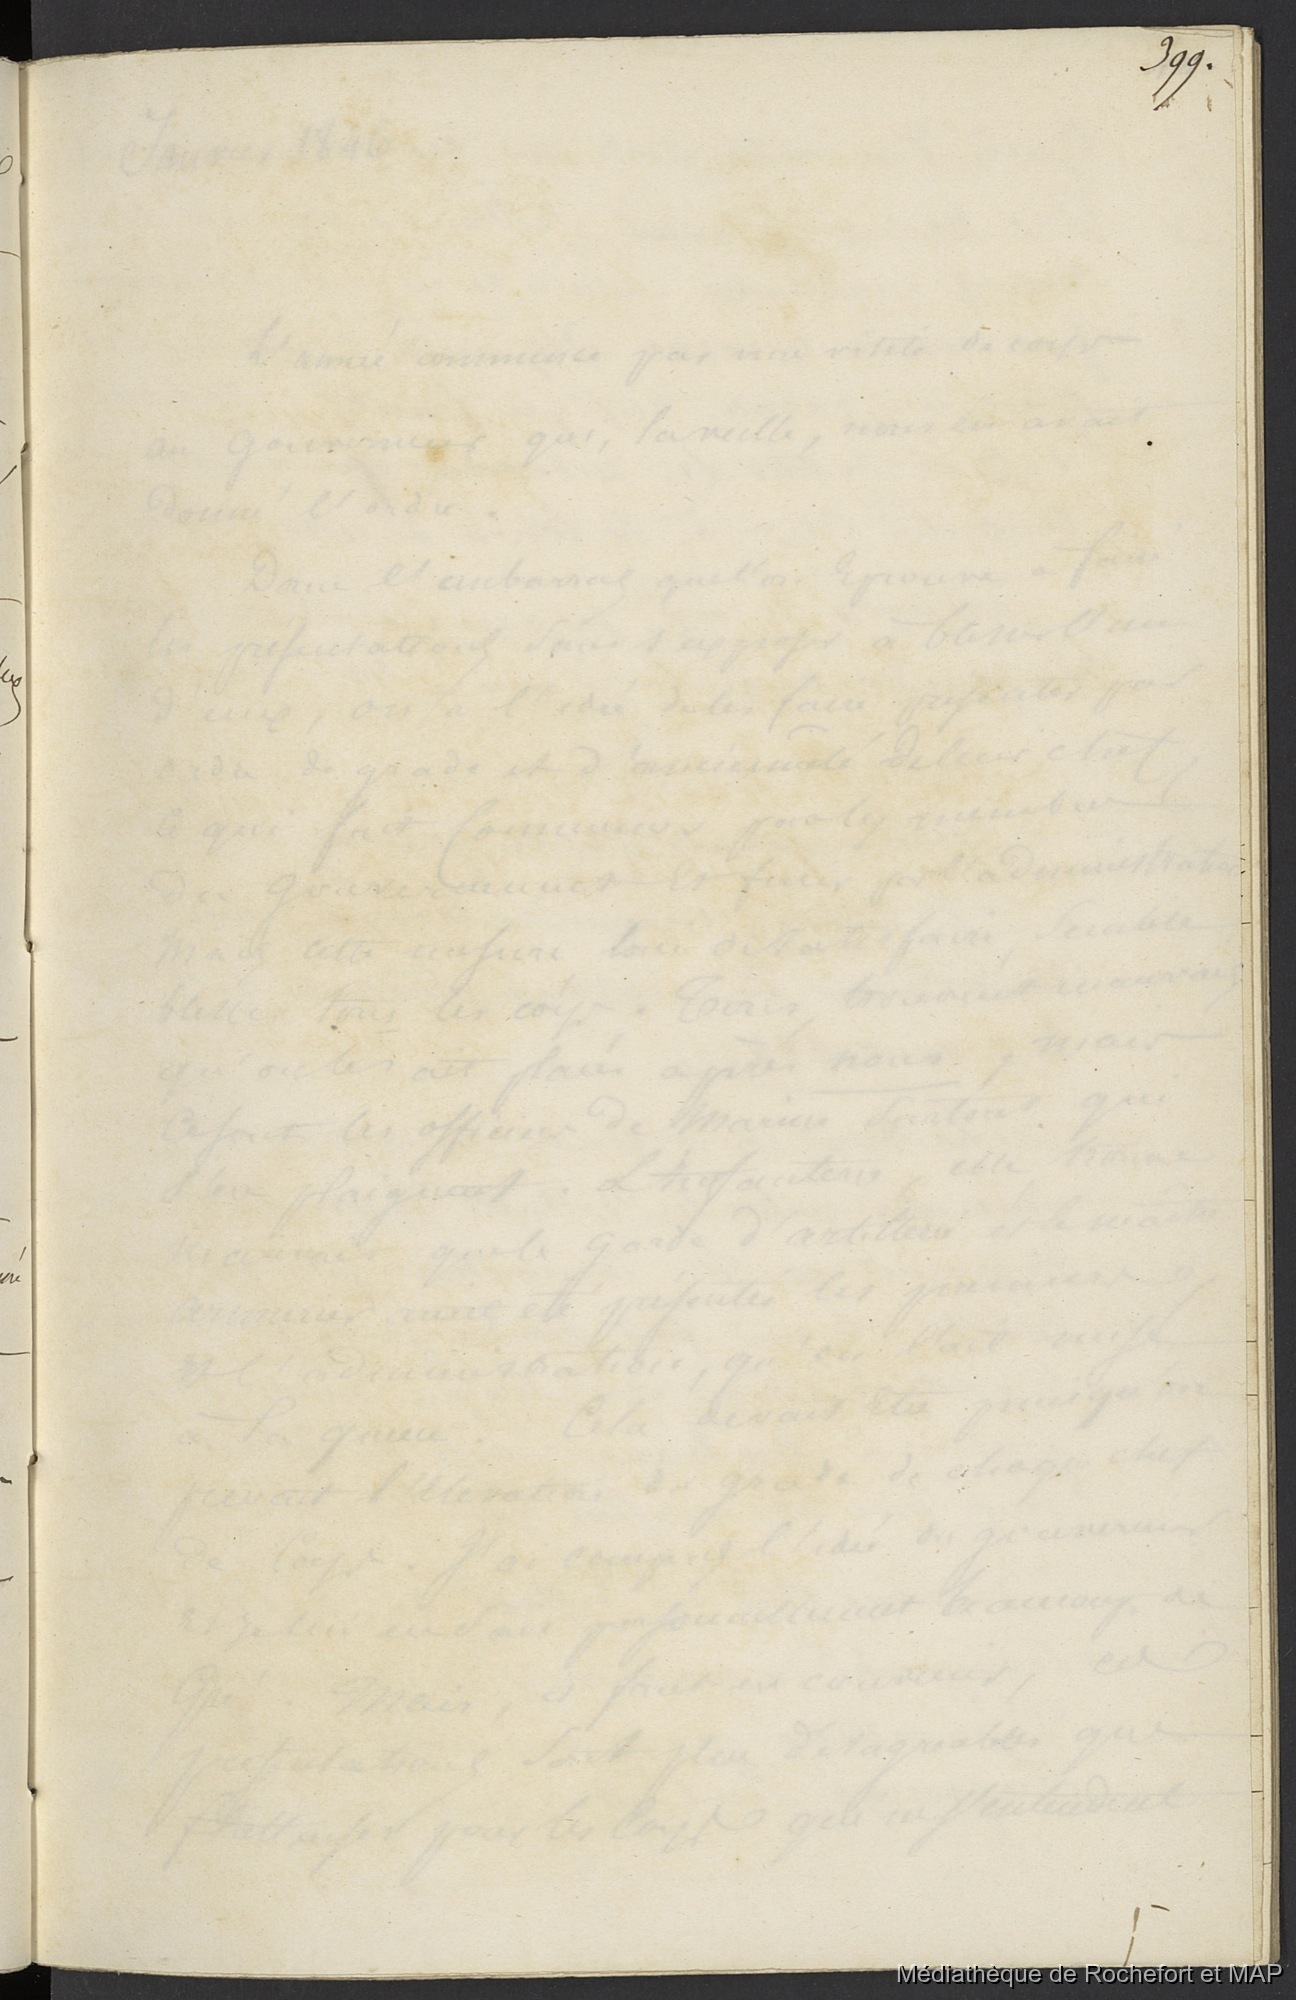 399.
Janvier 1846
L'année commence par une visite de corps
au gouverneur qui, la veille, nous en avait
donné l'ordre.
Dans l'embarras que l'on éprouve à faire
les présentations sans s'exposer à blesser l'un
d'eux, on a l'idée de les faire présenter par
ordre de grade et d'ancienneté de leur chef,
ce qui fait commencer par les membres
du gouvernement et finir par l'administration
Mais cette mesure loin de satisfaire, semble
blesser tous les corps. trouvent mauvais
qu'on les ait placés après nous, mais
ce sont les officiers de Marine surtout qui
s'en plaignent. L'infanterie, elle trouve
mauvais que le garde d'artillerie et le maître
armurier aient été présentés les premiers,
et l'administration, qu'on l'ait mise
à la queue. Cela devait être puisqu'on
suivait l'élévation du grade de chaque chef
de corps. J'ai compris l'idée du gouverneur
et je lui en sais personnellement beaucoup de
gré. Mais, il faut en convenir, ces
présentations sont plus désagréables que
flatteuses pour les corps qui ne s'entendent